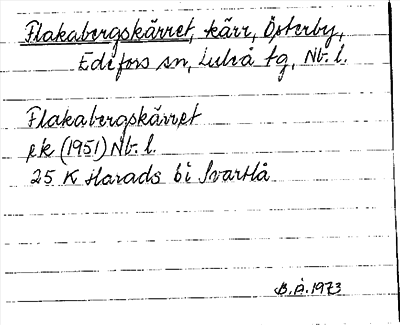 Flakabergskärret, kärr, Österby,
Edefors sn, Luleå tg, Nb. l.
Flakabergskärret
ek (1951) Nb. l.
25 K Harads bi Svartlå
B.Å. 1973